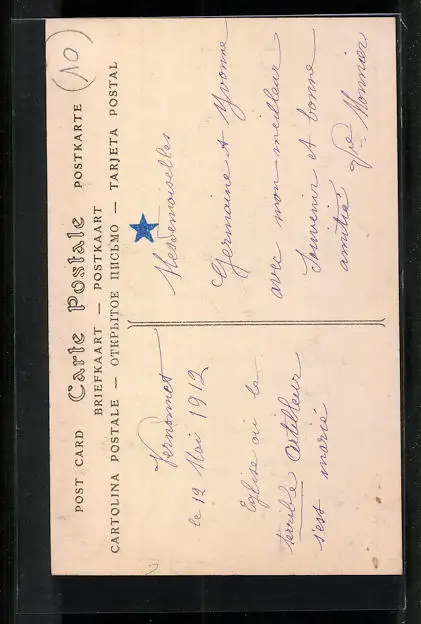 (10)
POST CARD Carte Postale POSTKARTE
BRIEFKAART — POSTKAART
CARTOLINA POSTALE — ОТКРЫТОЕ ПИСЬМО — TARJETA POSTAL
le 12 Mai 1912
Eglise où le
terrible Artilleur
s'est marié
Mesdemoiselles
Germaine et Yvonne
avec mon meilleur
Souvenir et bonne
amitié Vve Monnier